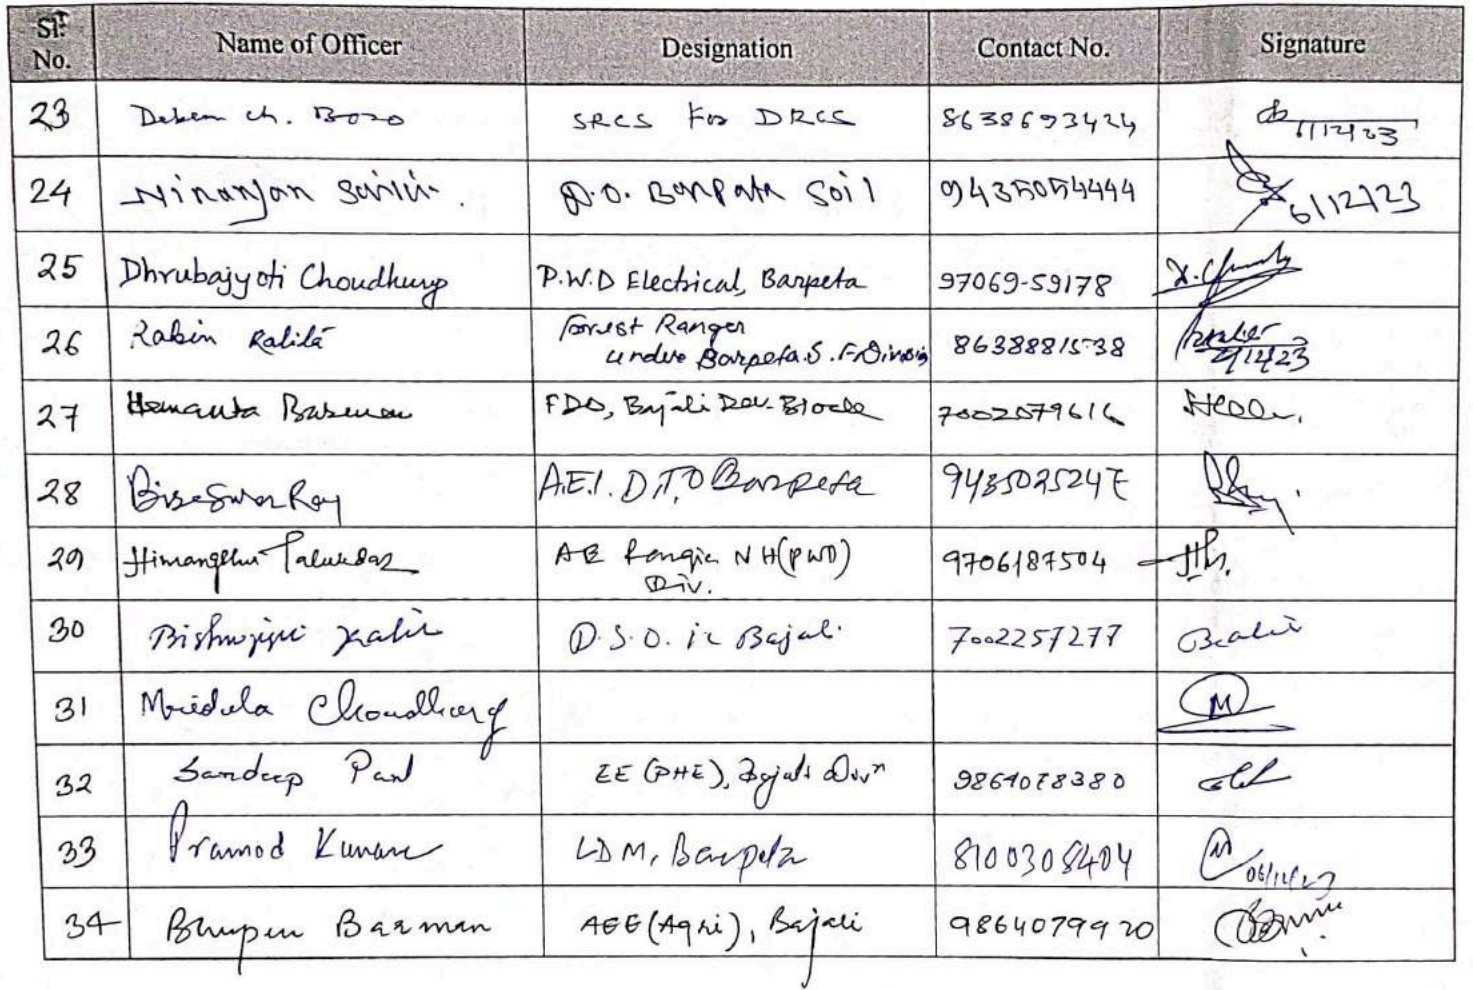 Sl. No. Name of Officer Designation Contact No. Signature
23 Deben ch. Boro SRCS For DRCS 8638693424 6/12/23
24 Niranjan D.O. Barpeta Soil 9435054444 6/12/23
25 Dhrubajyoti Choudhury P.W.D Electrical, Barpeta 97069-59178
26 Rabin Kalita Forest Ranger
under Barpeta.S.F.Division 8638881538 6/12/23
27 Hemanta Barman FDO, Bajali Dev. Block 7002579616
28 Biseswar Roy A.E.I. D.T.O Barpeta
29 Himangshu Talukdar AE Rangia NH(PWD) 9706187504
Div.
30 Kalita D.S.O. ic Bajali 7002257277
31 Mridula Choudhury M
32 Sandeep Paul EE (PHE), Bajali Divn 9864078380
33 Pramod Kumar LDM, Barpeta 8100308404 06/12/23
34 Bhupen Barman AEE(Agri), Bajali 9864079920